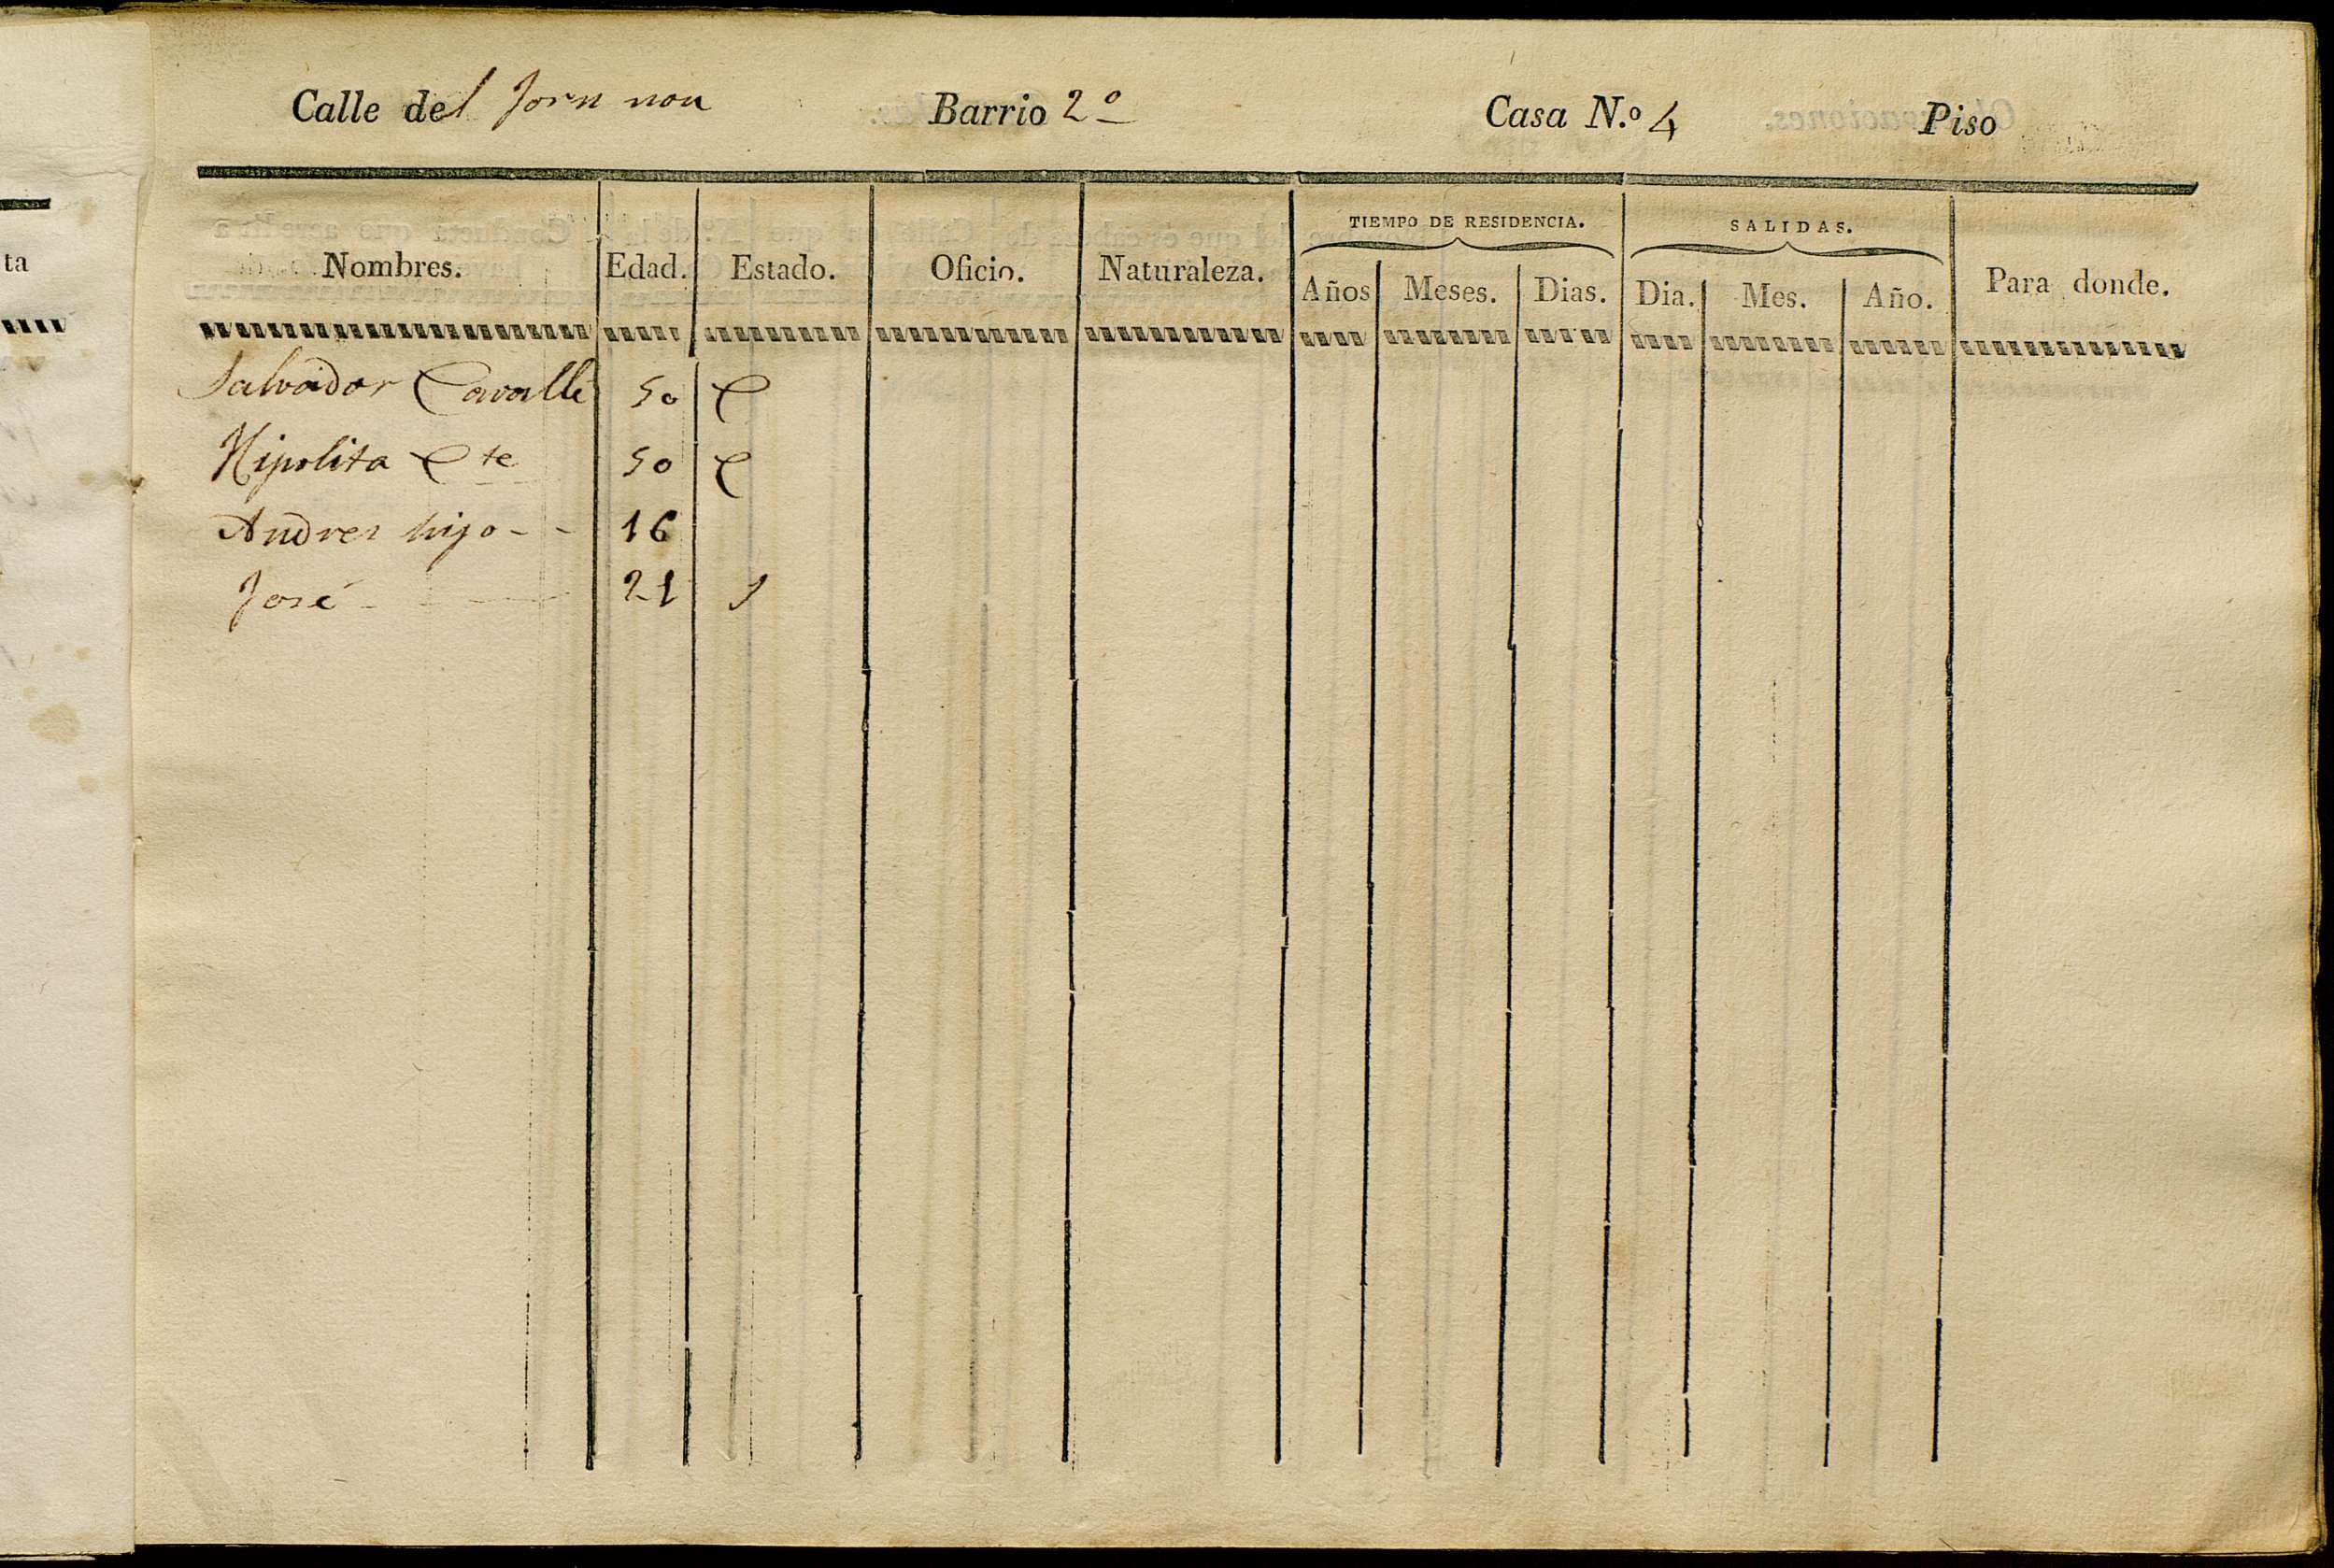 Calle del forn nou Barrio 2º Casa N.º 4 Piso
TIEMPO DE RESIDENCIA. SALIDAS.
Nombres. Edad. Estado. Oficio. Naturaleza. Años Meses. Dias. Dia. Mes. Año. Para donde.
Salvador Cavallé 50 C
Hipolita Cte 50 C
Andres hijo - - 16
José - 21 S
ta